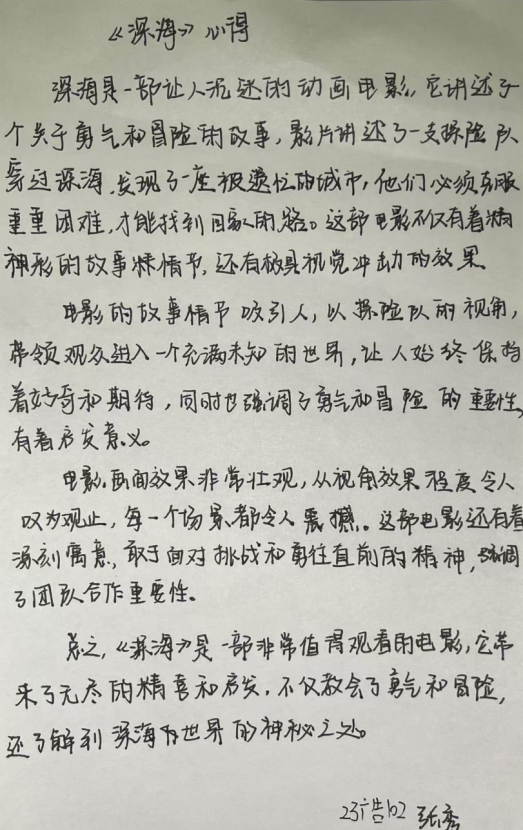 《深海》心得
深海是一部让人沉迷的动画电影，它讲述了
个关于勇气和冒险的故事，影片讲述了一支探险队
穿过深海，发现了一座被遗忘的城市，他们必须克服
重重困难，才能找到回家的路。这部电影不仅有着精
神彩的故事情节，还有极具视觉冲击力的效果
电影的故事情节吸引人，以探险队的视角，
带领观众进入一个充满未知的世界，让人始终保持
着好奇和期待，同时也强调了勇气和冒险的重要性，
有着启发意义。
电影画面效果非常壮观，从视角效果程度令人
叹为观止，每一个场景都令人震撼。这部电影还有着
深刻寓意，敢于面对挑战和勇往直前的精神，强调
了团队合作重要性。
总之，《深海》是一部非常值得观看的电影，它带
来了无尽的精喜和启发，不仅教会了勇气和冒险，
还了解到深海世界的神秘之处。
23广告102 张秀